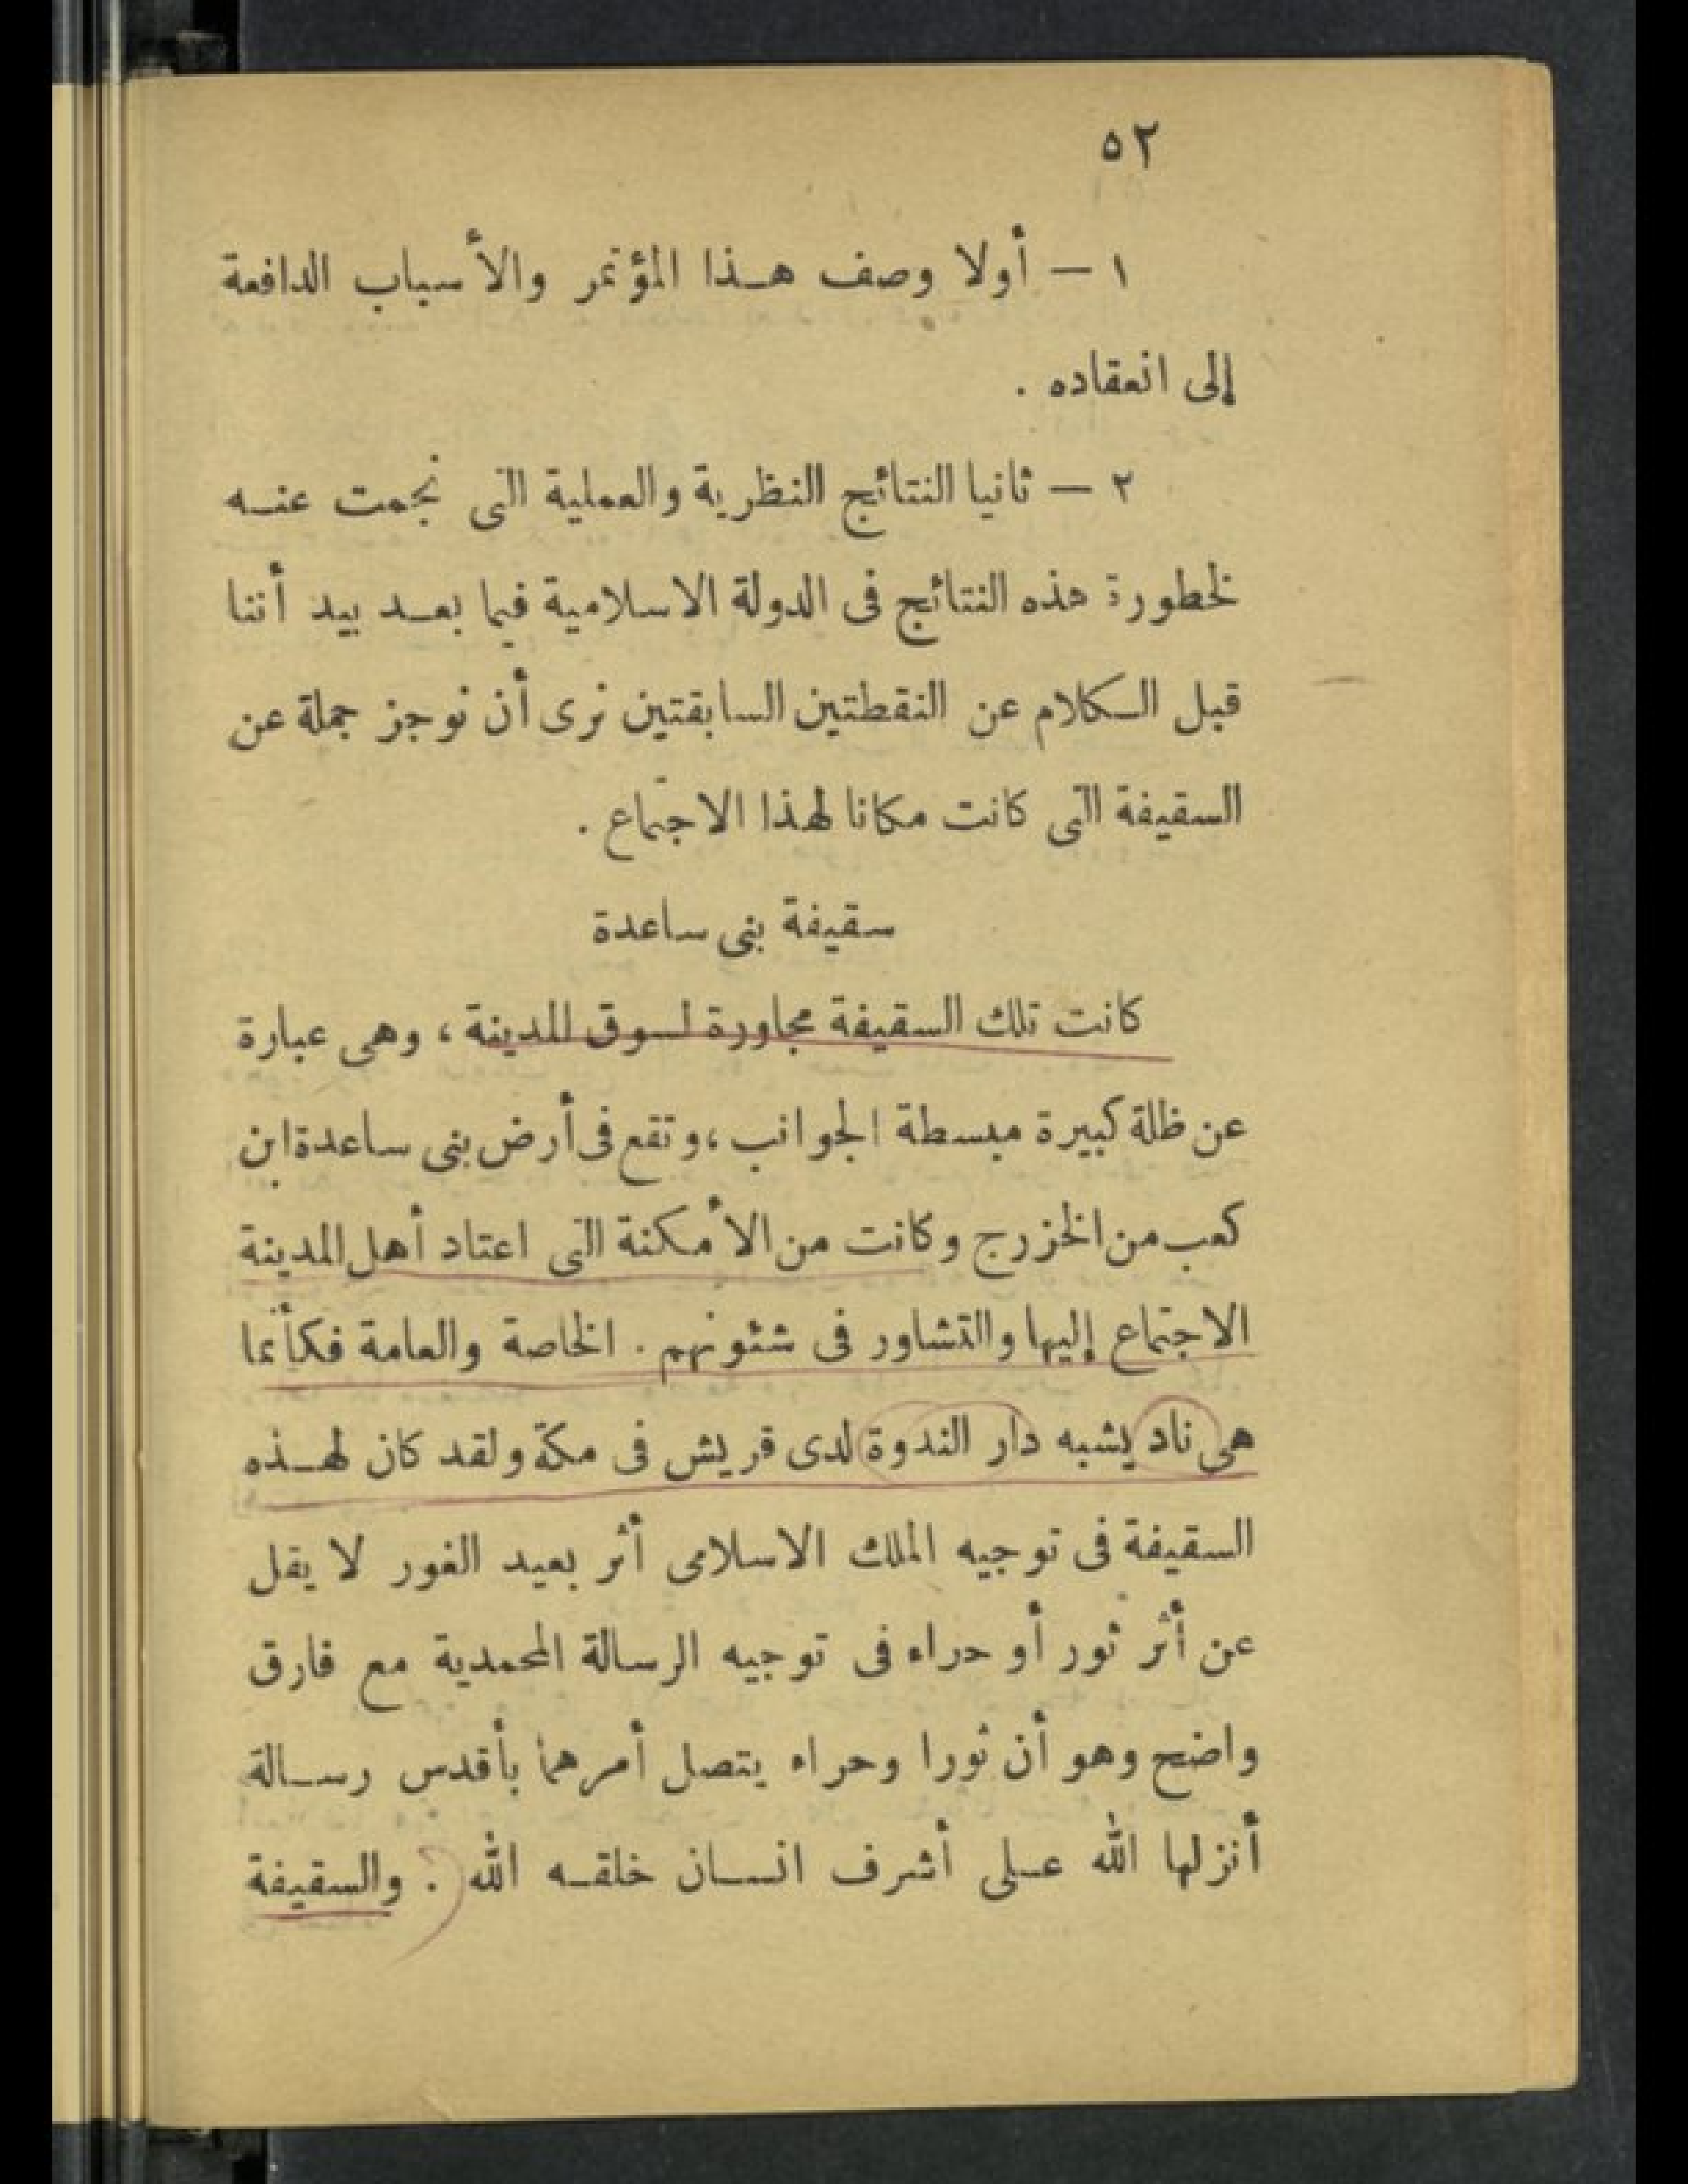 ٥٢
١ — أولا وصف هذا المؤتمر والأسباب الدافعة
إلى انعقاده .
٢ — ثانيا النتائج النظرية والعملية التى نجمت عنه
لخطورة هذه النتائج فى الدولة الاسلامية فيما بعد بيد أننا
قبل الكلام عن النقطتين السابقتين نرى أن نوجز جملة عن
السقيفة التى كانت مكانا لهذا الاجتماع .
سقيفة بنى ساعدة
كانت تلك السقيفة مجاورة لسوق المدينة ، وهى عبارة
عن ظلة كبيرة مبسطة الجوانب ، وتقع فى أرض بنى ساعدة ابن
كعب من الخزرج وكانت من الأمكنة التى اعتاد أهل المدينة
الاجتماع إليها والتشاور فى شئونهم . الخاصة والعامة فكأنما
هى ناد يشبه دار الندوة لدى قريش فى مكة ولقد كان لهذه
السقيفة فى توجيه الملك الاسلامى أثر بعيد الغور لا يقل
عن أثر ثور أو حراء فى توجيه الرسالة المحمدية مع فارق
واضح وهو أن ثورا وحراء يتصل أمرهما بأقدس رسالة
أنزلها الله على أشرف انسان خلقه الله . والسقيفة